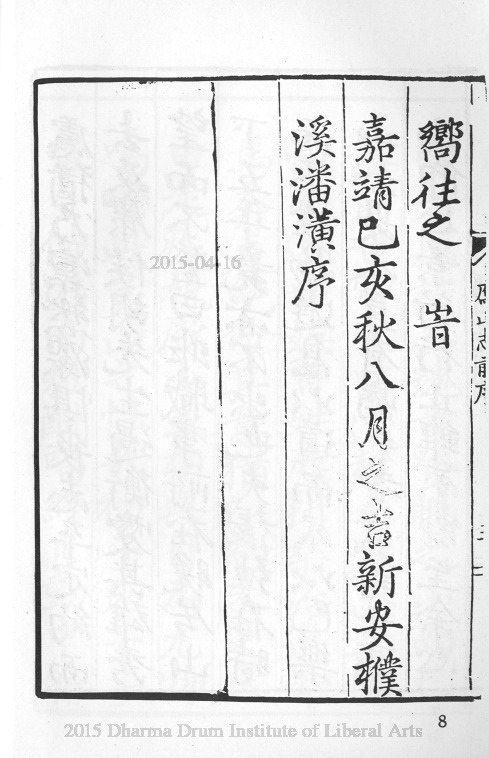 嚮往之 旹
嘉靖己亥秋八月之吉新安樸
溪潘潢序
山志前序
2015-04-16
8
2015 Dharma Drum Institute of Liberal Arts